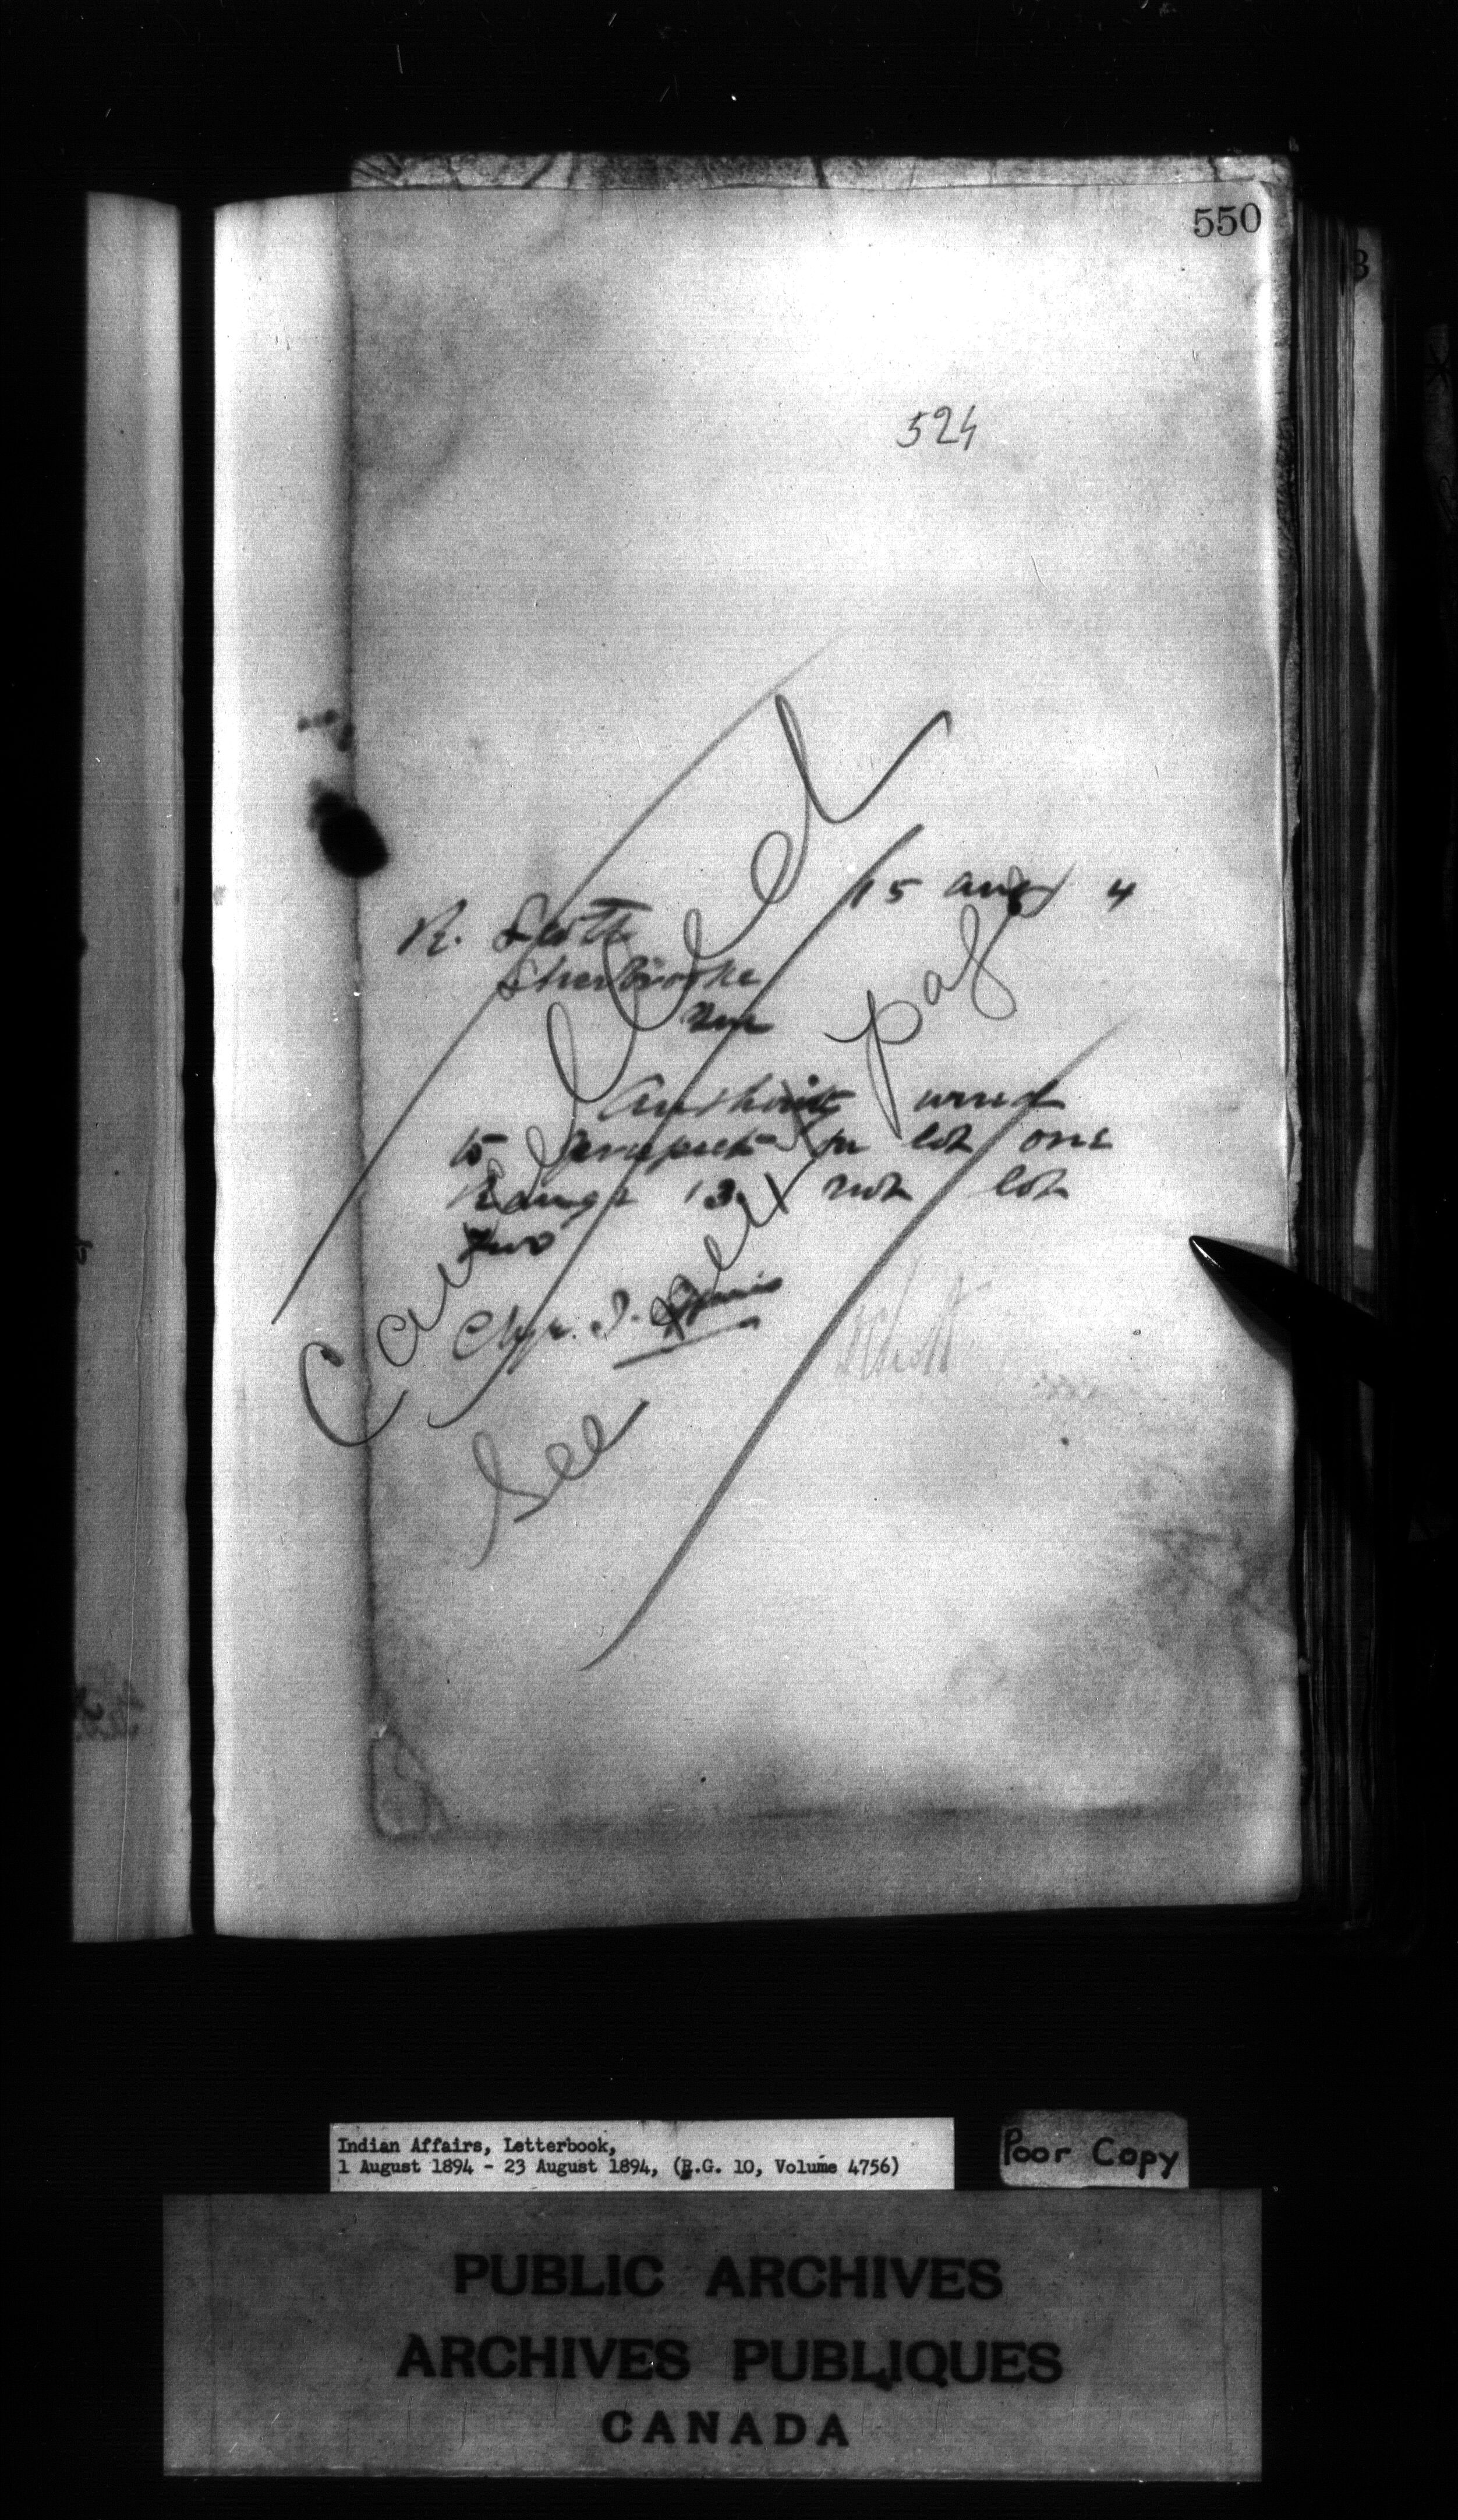 550
524
15 Aug 4
R. Scott
Sherbrooke
Que
Authority wired
to prospect on lot one
Range 13 not lot
Two
Chge. I.
Cancelled
See next page
Scott
Indian Affairs, Letterbook,
1 August 1894 - 23 August 1894, (R.G. 10, Volume 4756)
Poor Copy
PUBLIC ARCHIVES
ARCHIVES PUBLIQUES
CANADA